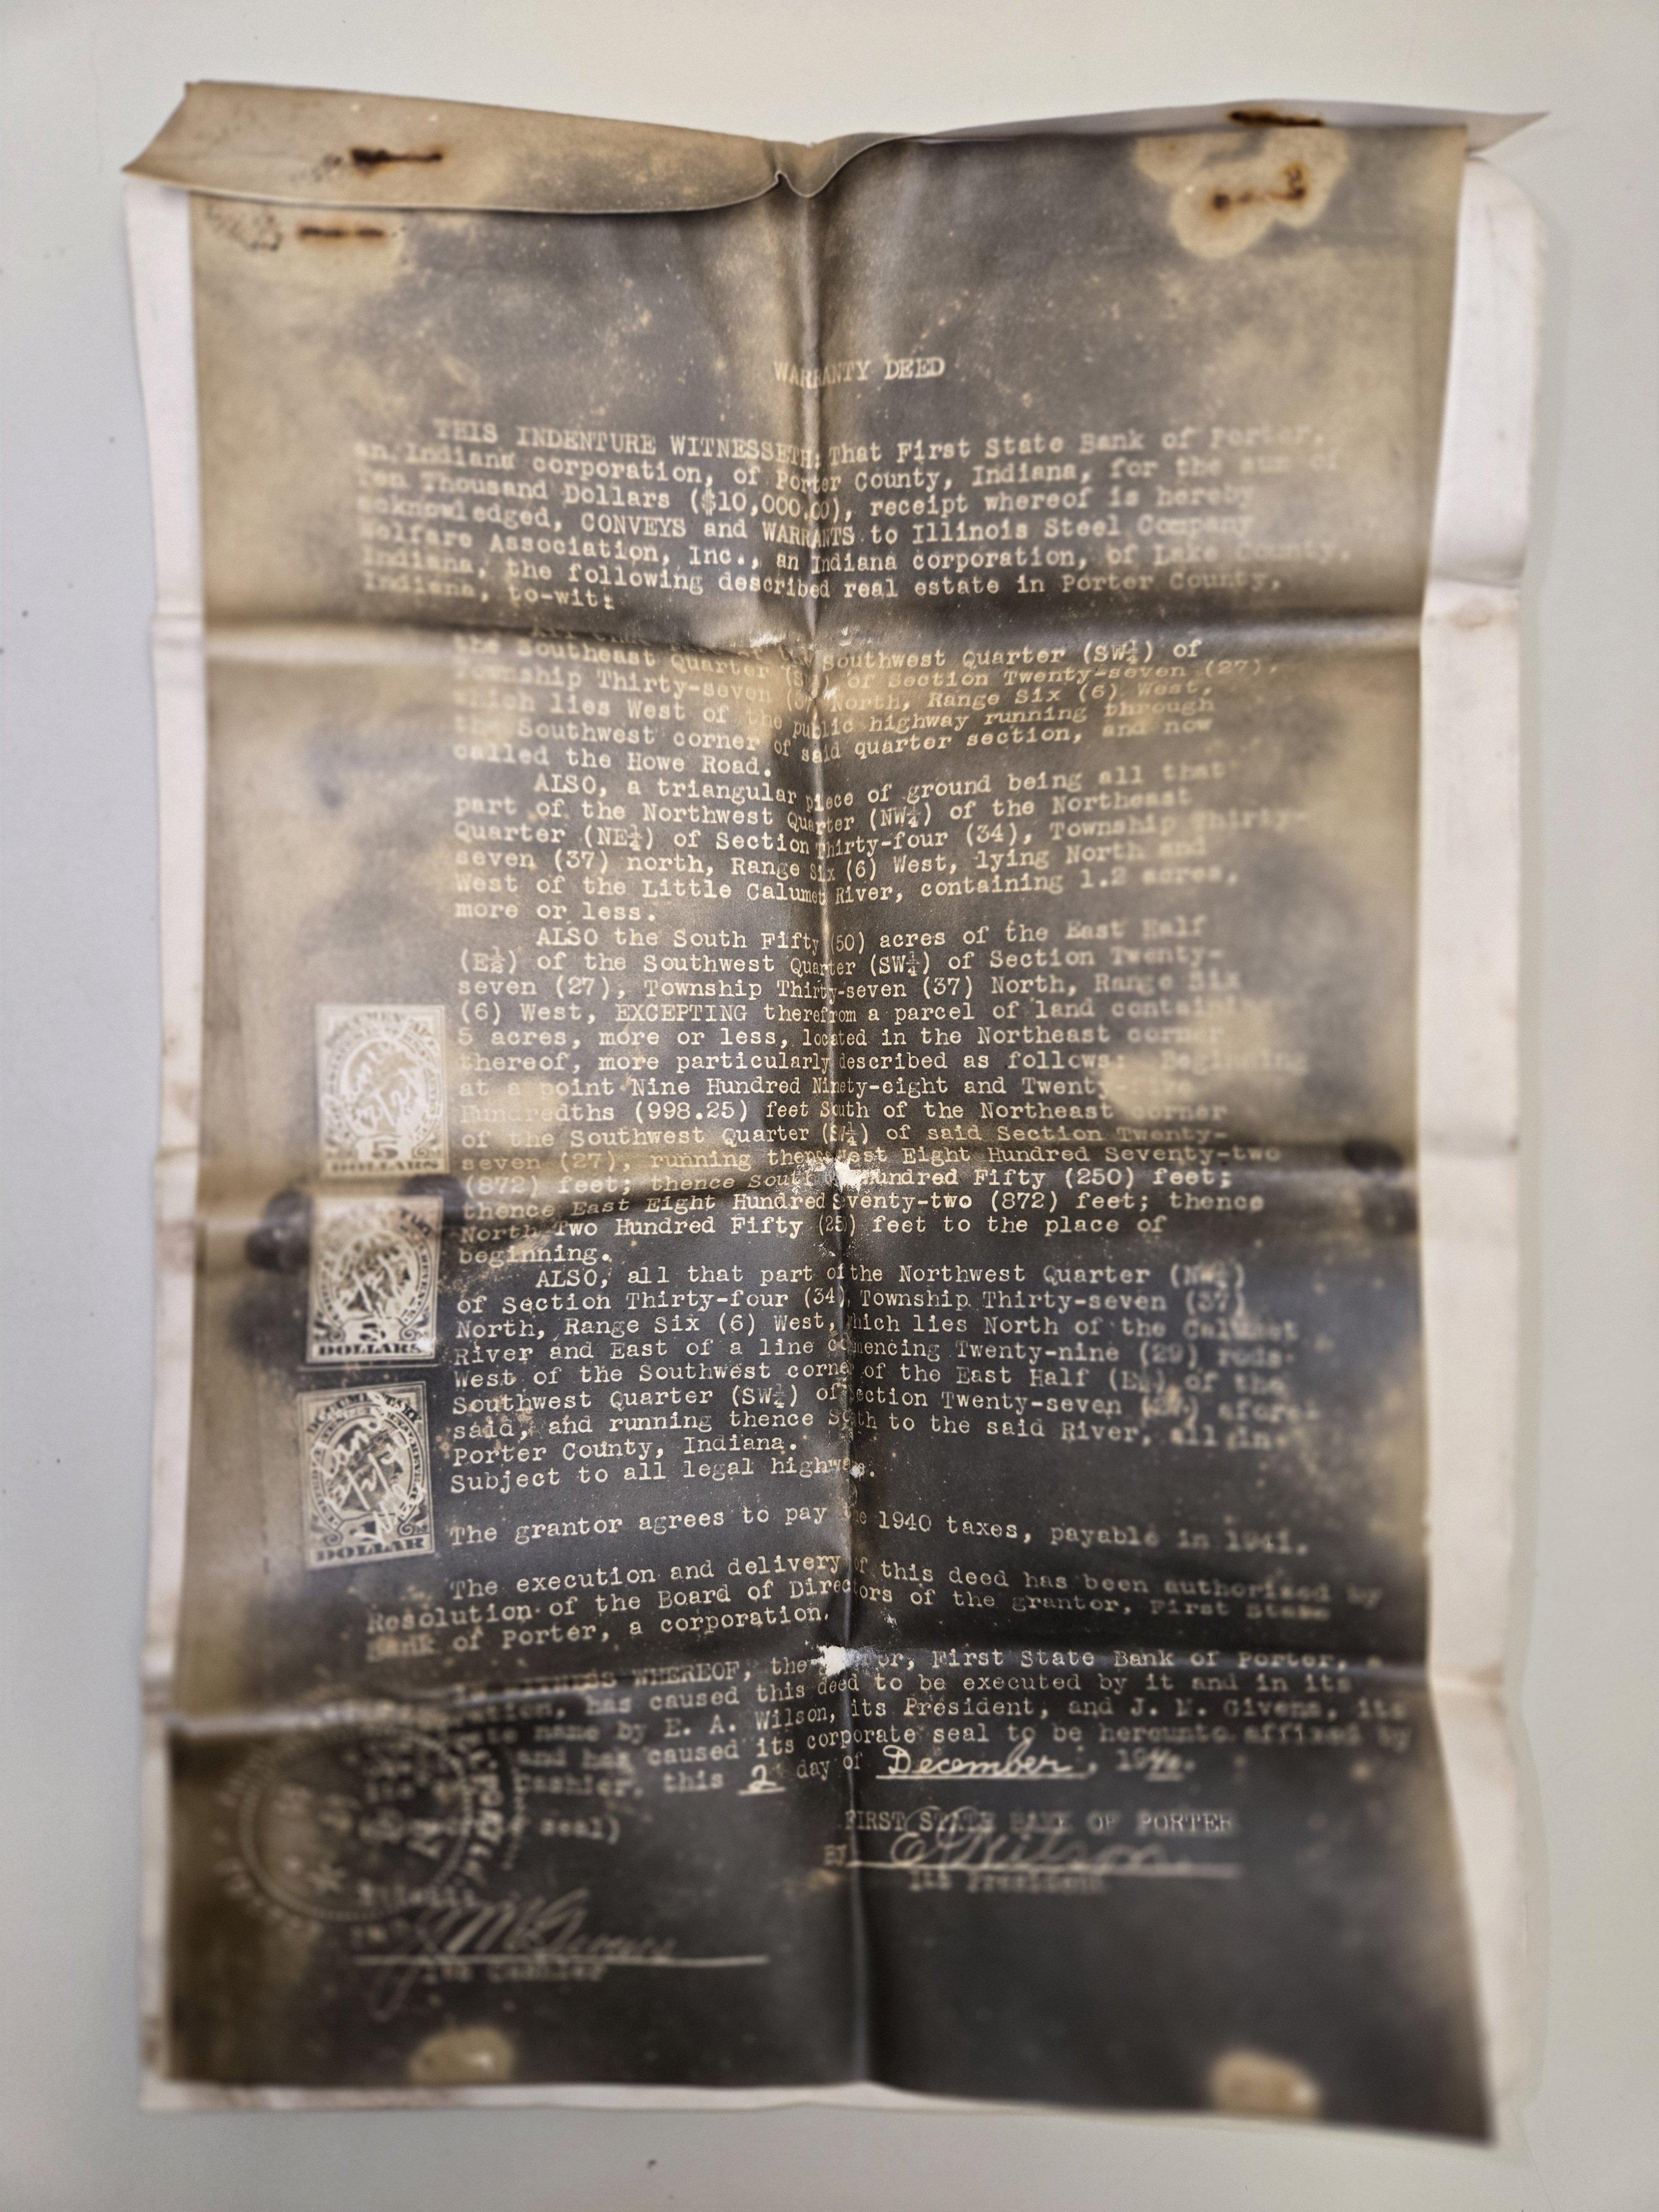 WARRANTY DEED
THIS INDENTURE WITNESSETH: That First State Bank of Porter,
an Indiana corporation, of Porter County, Indiana, for the sum of
Ten Thousand Dollars ($10,000.00), receipt whereof is hereby
acknowledged, CONVEYS and WARRANTS to Illinois Steel Company
Welfare Association, Inc., an Indiana corporation, of Lake County,
Indiana, the following described real estate in Porter County,
Indiana, to-wit:
All that Southwest Quarter (SW¼) of
the Southeast Quarter of Section Twenty-seven (27),
Township Thirty-seven North, Range Six (6) West,
which lies West of the public highway running through
the Southwest corner of said quarter section, and now
called the Howe Road.
ALSO, a triangular piece of ground being all that
part of the Northwest Quarter (NW¼) of the Northeast
Quarter (NE¼) of Section Thirty-four (34), Township Thirty-
seven (37) north, Range Six (6) West, lying North and
West of the Little Calumet River, containing 1.2 acres,
more or less.
ALSO the South Fifty (50) acres of the East Half
(E½) of the Southwest Quarter (SW¼) of Section Twenty-
seven (27), Township Thirty-seven (37) North, Range Six
(6) West, EXCEPTING therefrom a parcel of land containing
5 acres, more or less, located in the Northeast corner
thereof, more particularly described as follows: Beginning
at a point Nine Hundred Ninety-eight and Twenty-five
Hundredths (998.25) feet South of the Northeast corner
of the Southwest Quarter (SW¼) of said Section Twenty-
seven (27), running thence West Eight Hundred Seventy-two
(872) feet; thence South Hundred Fifty (250) feet;
thence East Eight Hundred Seventy-two (872) feet; thence
North Two Hundred Fifty (250) feet to the place of
beginning.
ALSO, all that part of the Northwest Quarter (NW¼)
of Section Thirty-four (34) Township Thirty-seven (37)
North, Range Six (6) West, which lies North of the Calumet
River and East of a line commencing Twenty-nine (29) rods
West of the Southwest corner of the East Half (E½) of the
Southwest Quarter (SW¼) of Section Twenty-seven (27) afore-
said, and running thence South to the said River, all in
Porter County, Indiana.
Subject to all legal highways.
The grantor agrees to pay the 1940 taxes, payable in 1941.
The execution and delivery of this deed has been authorized by
Resolution of the Board of Directors of the grantor, First State
Bank of Porter, a corporation.
IN WITNESS WHEREOF, the First State Bank of Porter, a
corporation, has caused this deed to be executed by it and in its
name by E. A. Wilson, its President, and J. M. Givens, its
and has caused its corporate seal to be hereunto affixed by
Cashier, this 2 day of December, 1940.
seal)
FIRST STATE BANK OF PORTER
By E A Wilson
Its President
J M Givens
Its Cashier
5
DOLLARS
DOLLARS
DOLLAR